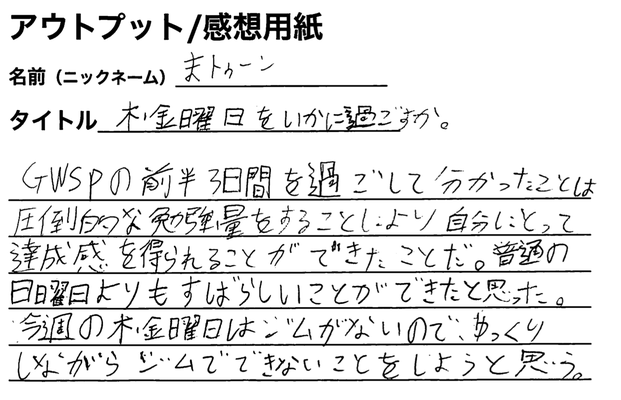 アウトプット/感想用紙
名前（ニックネーム） まトゥーン
タイトル 木金曜日をいかに過ごすか。
GWSPの前半3日間を過ごして分かったことは
圧倒的な勉強量をすることにより自分にとって
達成感を得られることができたことだ。普通の
日曜日よりもすばらしいことができたと思った。
今週の木金曜日はジムがないので、ゆっくり
しながらジムでできないことをしようと思う。